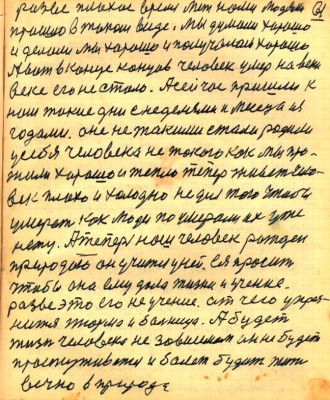 разве плохое время мол нашим людям
прошло в таком виде. Мы думали хорошо
и делали мы хорошо и получали хорошо
А вот в конце концов человек умер на веки
веке его не стало. А сейчас пришли к
нам такие дни с неделями и месяца и
годами. они не такими стали родили
у себя человека не такого как мы про-
жили хорошо и тепло теперь живет чело-
век плохо и холодно не для того чтобы
умерать как люди поумерали их уже
нету. А теперь наш человек рожден
природою он учится у ней. Ея просит
чтобы она ему дала жизнь и учение.
разве это его не учение. от чего укра-
нится тюрма и больница. А будет
жизн человека не зависимой он не будет
простуживатся и болет будет жить
вечно в природе